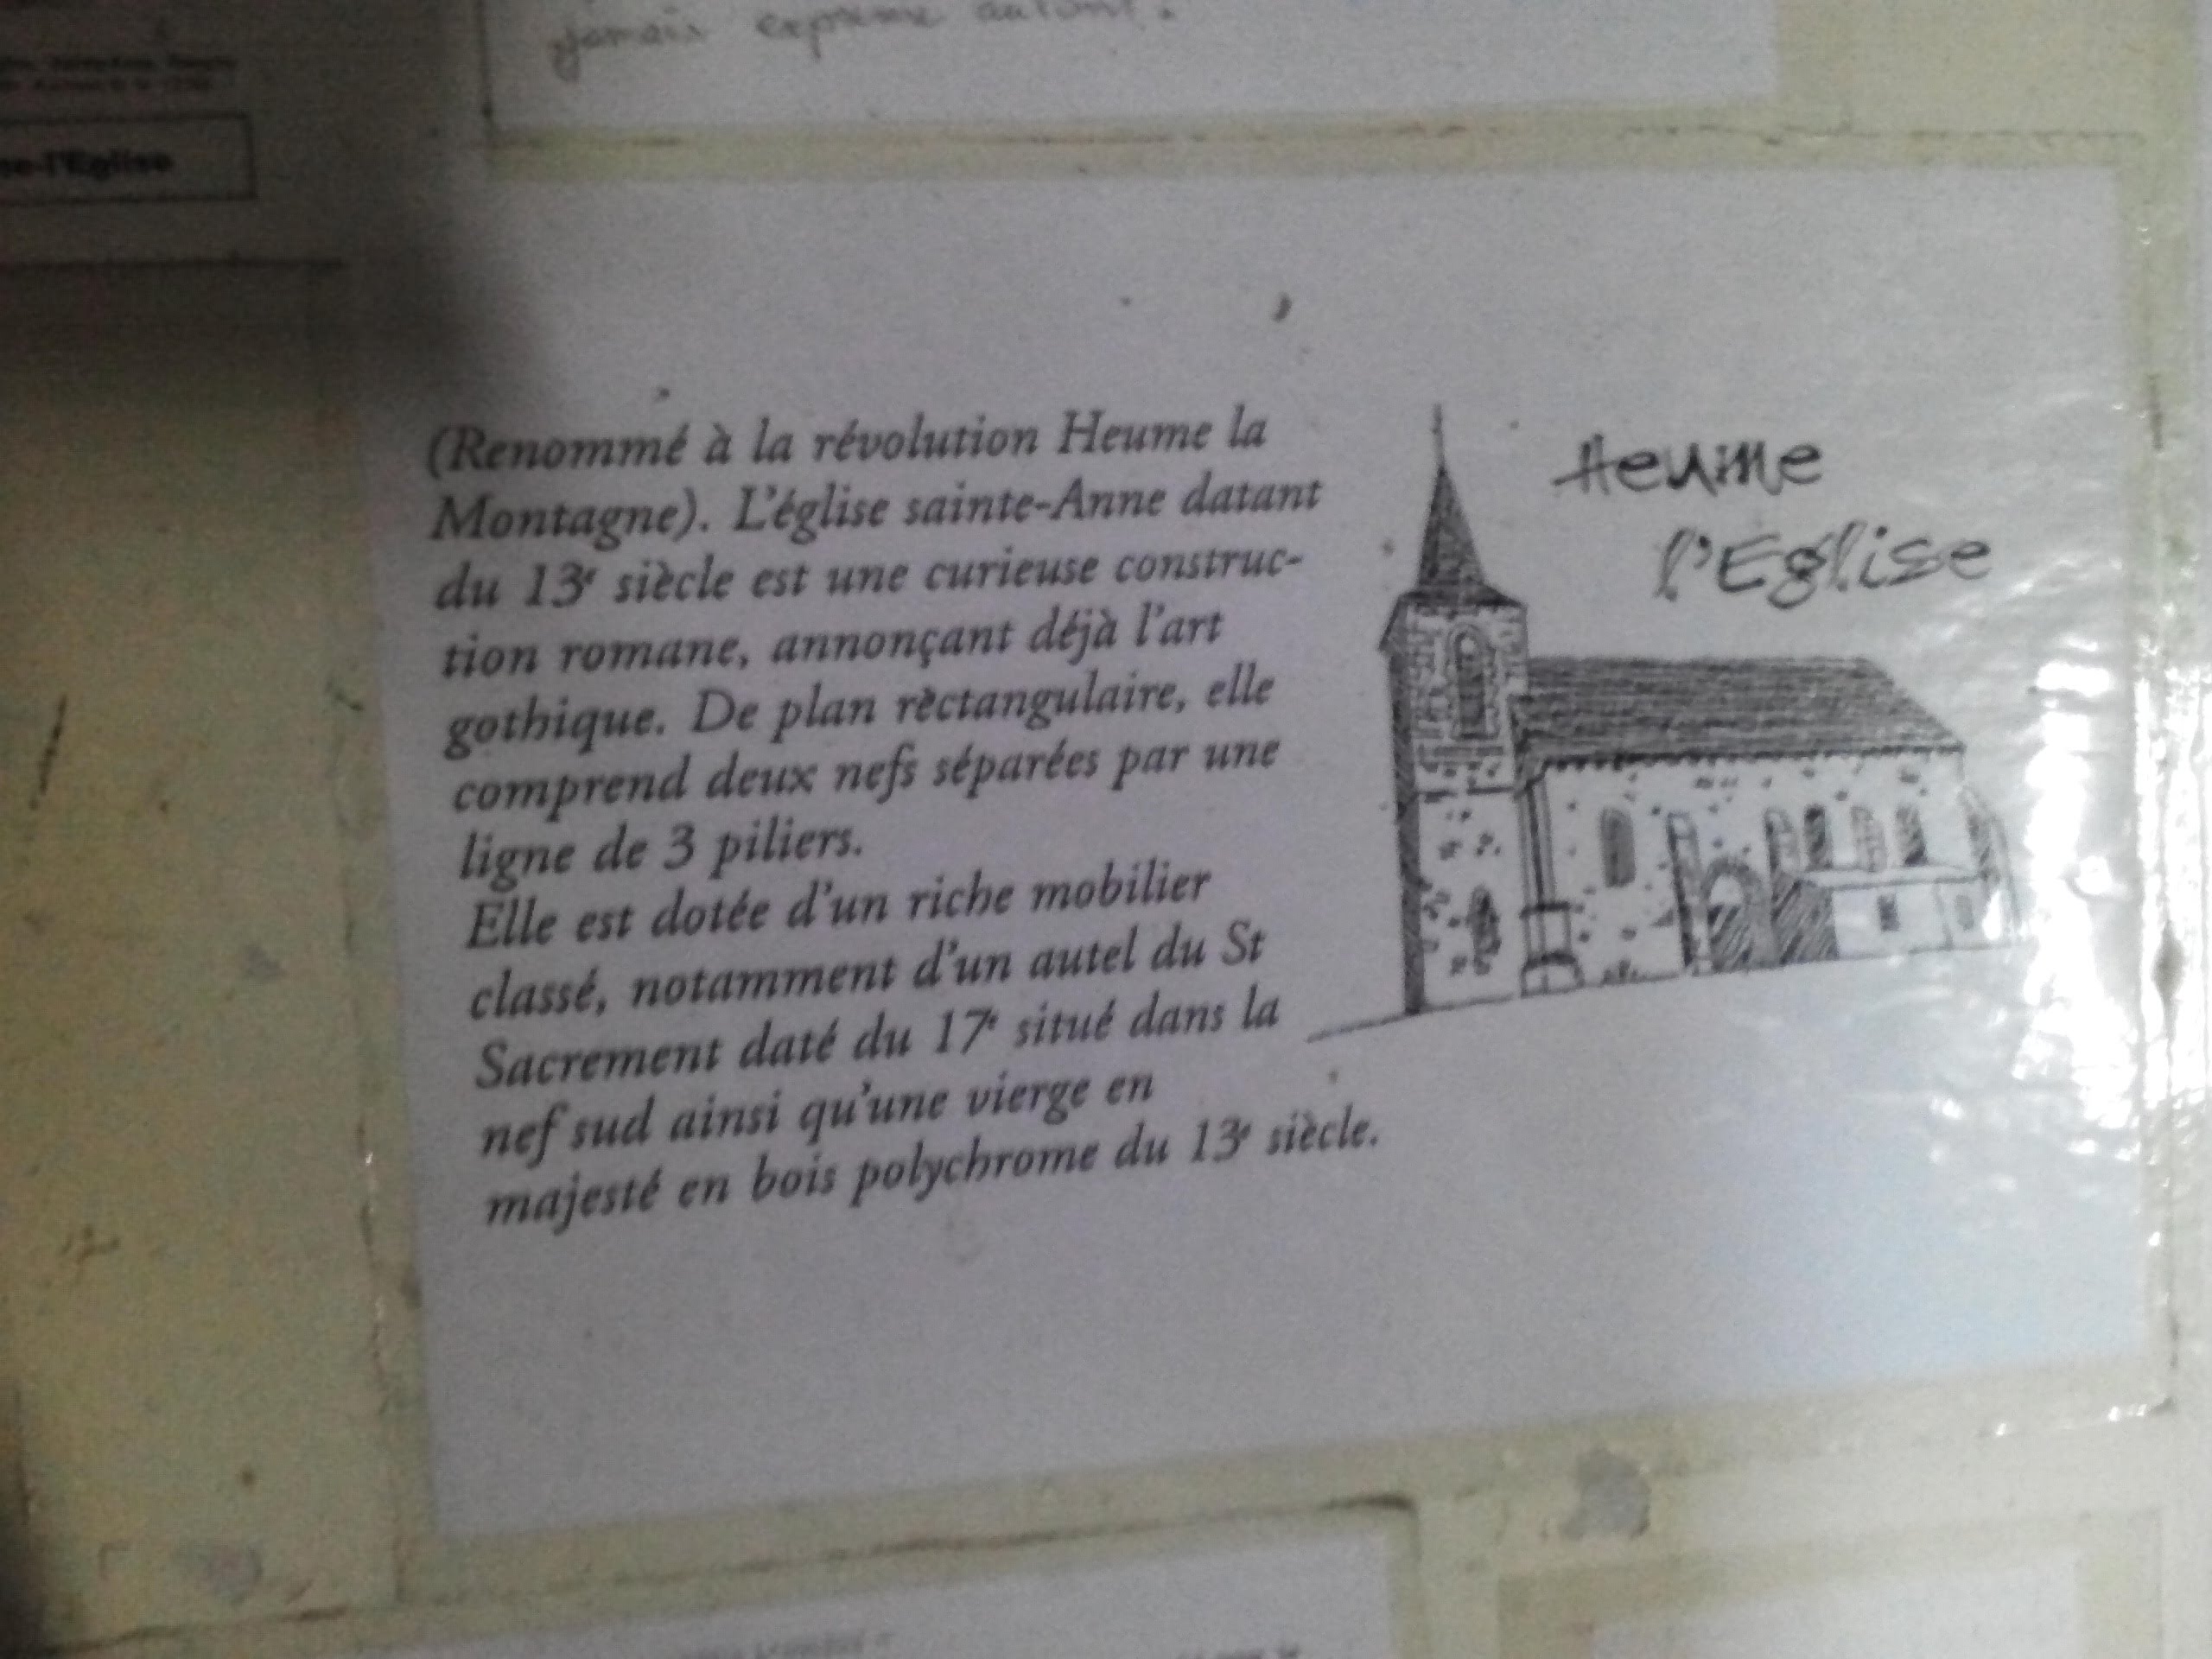 jamais exprimé autant.
se-l'Eglise
(Renommé à la révolution Heume la
Montagne). L'église sainte-Anne datant
du 13e siècle est une curieuse construc-
tion romane, annonçant déjà l'art
gothique. De plan rectangulaire, elle
comprend deux nefs séparées par une
ligne de 3 piliers.
Elle est dotée d'un riche mobilier
classé, notamment d'un autel du St
Sacrement daté du 17e situé dans la
nef sud ainsi qu'une vierge en
majesté en bois polychrome du 13e siècle.
Heume
l'Eglise